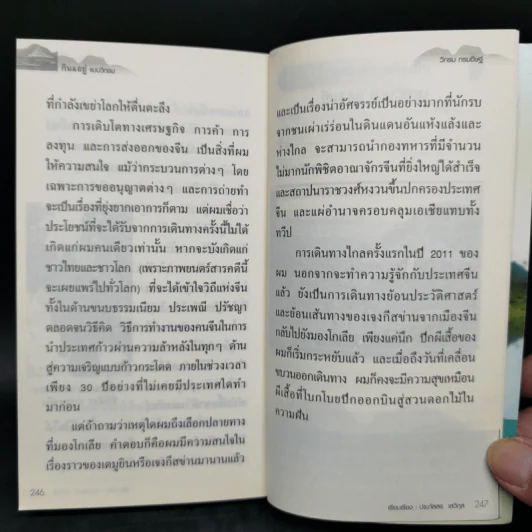 กิน&อยู่ แบบวิกรม
ที่กำลังเขย่าโลกให้ตื่นตะลึง
การเติบโตทางเศรษฐกิจ การค้า การ
ลงทุน และการส่งออกของจีน เป็นสิ่งที่ผม
ให้ความสนใจ แม้ว่ากระบวนการต่างๆ โดย
เฉพาะการขออนุญาตต่างๆ และการถ่ายทำ
จะเป็นเรื่องที่ยุ่งยากเอาการก็ตาม แต่ผมเชื่อว่า
ประโยชน์ที่จะได้รับจากการเดินทางครั้งนี้ไม่ได้
เกิดแก่ผมคนเดียวเท่านั้น หากจะบังเกิดแก่
ชาวไทยและชาวโลก (เพราะภาพยนตร์สารคดีนี้
จะเผยแพร่ไปทั่วโลก) ที่จะได้เข้าใจวิถีแห่งจีน
ทั้งในด้านขนบธรรมเนียม ประเพณี ปรัชญา
ตลอดจนวิธีคิด วิธีการทำงานของคนจีนในการ
นำประเทศก้าวผ่านความล้าหลังในทุกๆ ด้าน
สู่ความเจริญแบบก้าวกระโดด ภายในช่วงเวลา
เพียง 30 ปีอย่างที่ไม่เคยมีประเทศใดทำ
มาก่อน
แต่ถ้าถามว่าเหตุใดผมถึงเลือกปลายทาง
ที่มองโกเลีย คำตอบก็คือผมมีความสนใจใน
เรื่องราวของเตมูยินหรือเจงกีสข่านมานานแล้ว
246
วิกรม กรมดิษฐ์
และเป็นเรื่องน่าอัศจรรย์เป็นอย่างมากที่นักรบ
จากชนเผ่าเร่ร่อนในดินแดนอันแห้งแล้งและ
ห่างไกล จะสามารถนำกองทหารที่มีจำนวน
ไม่มากนักพิชิตอาณาจักรจีนที่ยิ่งใหญ่ได้สำเร็จ
และสถาปนาราชวงศ์หงวนขึ้นปกครองประเทศ
จีน และแผ่อำนาจครอบคลุมเอเชียแทบทั้ง
ทวีป
การเดินทางไกลครั้งแรกในปี 2011 ของ
ผม นอกจากจะทำความรู้จักกับประเทศจีน
แล้ว ยังเป็นการเดินทางย้อนประวัติศาสตร์
และย้อนเส้นทางของเจงกีสข่านจากเมืองจีน
กลับไปยังมองโกเลีย เพียงแค่นึก ปีกผีเสื้อของ
ผมก็เริ่มกระหยับแล้ว และเมื่อถึงวันที่เคลื่อน
ขบวนออกเดินทาง ผมก็คงจะมีความสุขเหมือน
ผีเสื้อที่โบกโบยปีกออกบินสู่สวนดอกไม้ใน
ความฝัน
เรียบเรียง : ประภัสสร เสวิกุล
247